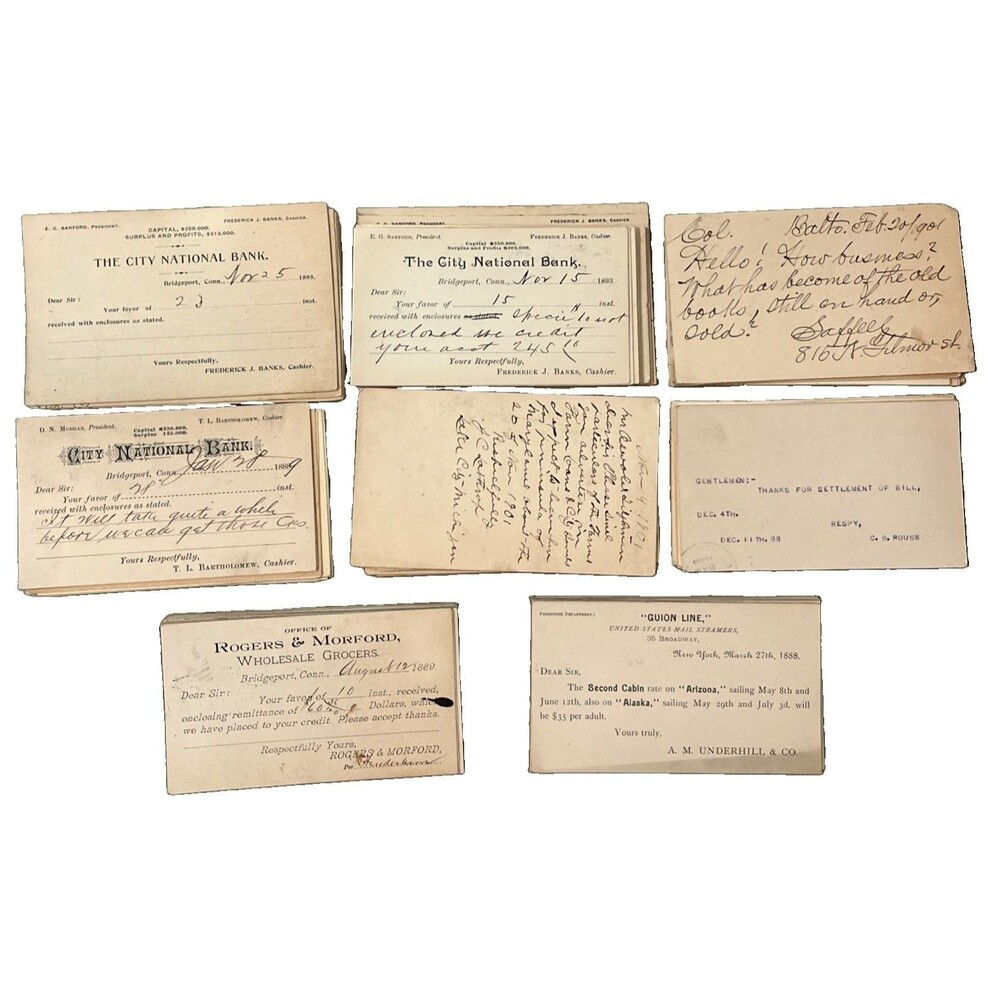 E. G. SANFORD, PRESIDENT. FREDERICK J. BANKS, CASHIER.
CAPITAL, $250,000.
SURPLUS AND PROFITS, $213,000.
THE CITY NATIONAL BANK.
Bridgeport, Conn., Nov 25 1893.
Dear Sir:
Your favor of 23 inst.
received with enclosures as stated.
Yours Respectfully,
FREDERICK J. BANKS, Cashier.
FREDERICK J. BANKS, Cashier.
E. G. SANFORD, President. FREDERICK J. BANKS, Cashier.
Capital $250,000.
The City National Bank.
Bridgeport, Conn., Nov 15 1893.
Dear Sir:
Your favor of 15 inst.
received with enclosures as stated. Specie to not
enclosed we credit
your acct 245
Yours Respectfully,
FREDERICK J. BANKS, Cashier.
Col. Balto. Feb. 20/901
Hello! How business?
What has become of the old
books, still on hand or
sold?
Saffell
816 N. Gilmor st.
D. N. MORGAN, President. T. L. BARTHOLOMEW, Cashier.
Capital $250,000.
Surplus 125,000.
CITY NATIONAL BANK.
Bridgeport, Conn. Jan 28 1889
Dear Sir:
Your favor of 28 inst.
received with enclosures as stated.
It will take quite a while
before we can get those
Yours Respectfully,
T. L. BARTHOLOMEW, Cashier.
Nov 4 1901
dear Sir Please send
particulars of the Farms
you advertise in
Farm
peninsula of
Maryland about the
20 of Nov 1901
Respectfully
Lake City Michigan
GENTLEMEN:-
THANKS FOR SETTLEMENT OF BILL,
DEC. 4TH.
RESPY,
DEC. 11TH. 88
C. B. ROUSS
OFFICE OF
ROGERS & MORFORD,
WHOLESALE GROCERS.
Bridgeport, Conn., August 12 1889.
Dear Sir:
Your favor of 10 inst., received,
enclosing remittance of Dollars, which
we have placed to your credit. Please accept thanks.
Respectfully Yours,
ROGERS & MORFORD,
Per
PASSENGER DEPARTMENT:
"GUION LINE,"
UNITED STATES MAIL STEAMERS,
35 BROADWAY,
New York, March 27th, 1888.
DEAR SIR,
The Second Cabin rate on "Arizona," sailing May 8th and
June 12th, also on "Alaska," sailing May 29th and July 3d, will
be $35 per adult.
Yours truly,
A. M. UNDERHILL & CO.